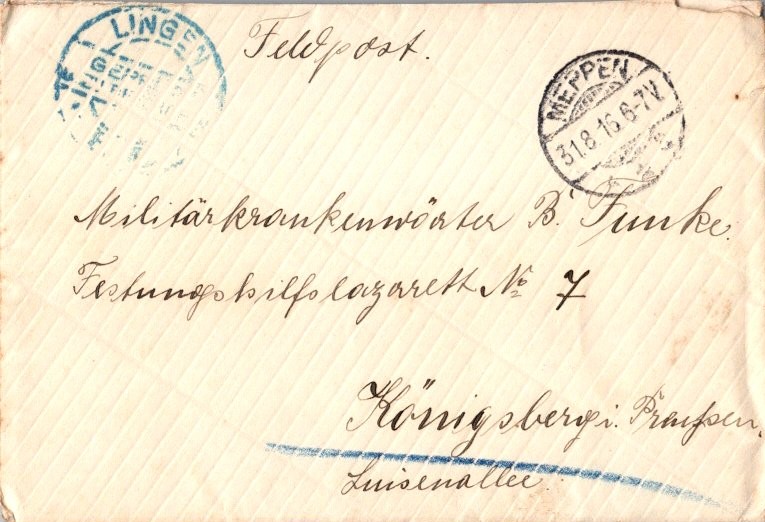 LINGEN
Feldpost.
MEPPEN
31.8.16.6-7V.
Militärkrankenwörter B. Funke.
Festungshilfslazarett No 7
Königsberg i. Preußen,
Luisenallee.